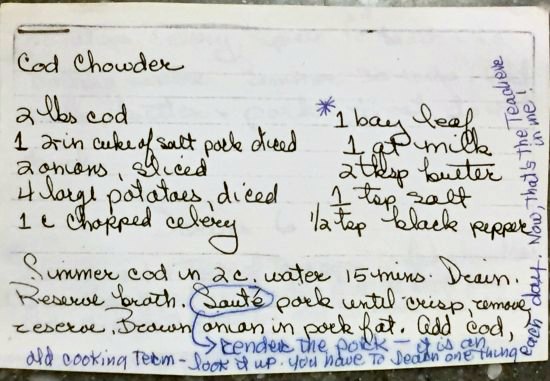 Cod Chowder
2 lbs cod
1 2 in cube of salt pork diced
2 onions, sliced
4 large potatoes, diced
1 c chopped celery
* 1 bay leaf
1 qt milk
2 tbsp butter
1 tsp salt
1/2 tsp black pepper
Simmer cod in 2 c. water 15 mins. Drain.
Reserve broth. Sauté pork until crisp, remove,
reserve. Brown onion in pork fat. Add cod,
→ renders the pork - it is an
old cooking term - look it up. You have to learn one thing
each day. Now, that's the Teacher
in me!